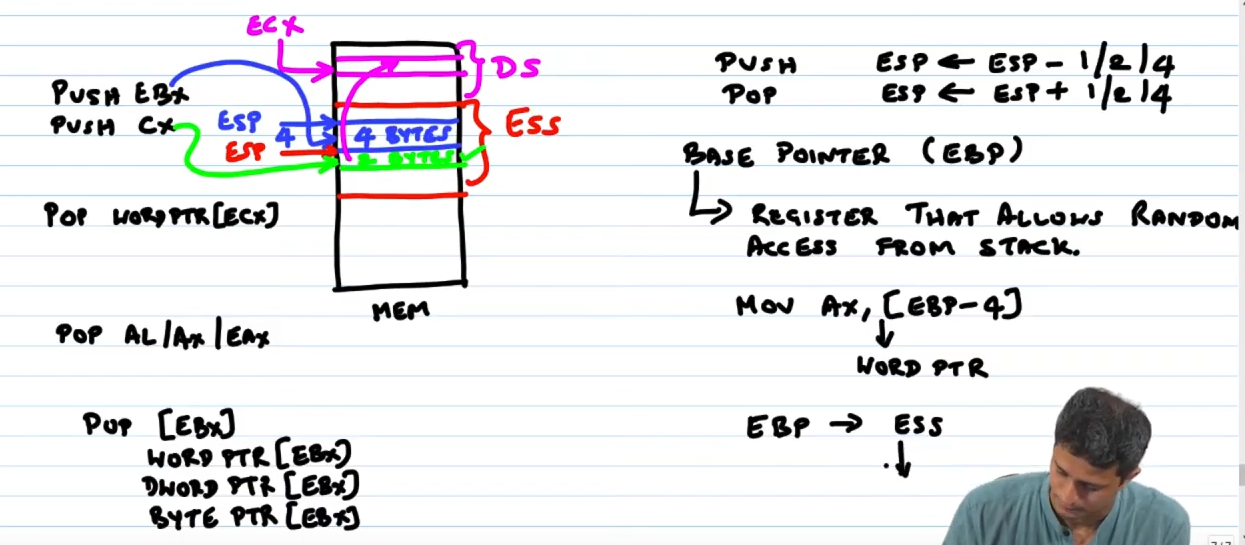 ECX
DS
PUSH EBX
PUSH CX
ESP
4
4 BYTES
ESP
2 BYTES
ESS
POP WORD PTR [ECX]
MEM
POP AL/AX/EAX
POP [EBX]
WORD PTR [EBX]
DWORD PTR [EBX]
BYTE PTR [EBX]
PUSH ESP ← ESP - 1/2/4
POP ESP ← ESP + 1/2/4
BASE POINTER (EBP)
↳ REGISTER THAT ALLOWS RANDOM
ACCESS FROM STACK.
MOV AX, [EBP-4]
↓
WORD PTR
EBP → ESS
↓